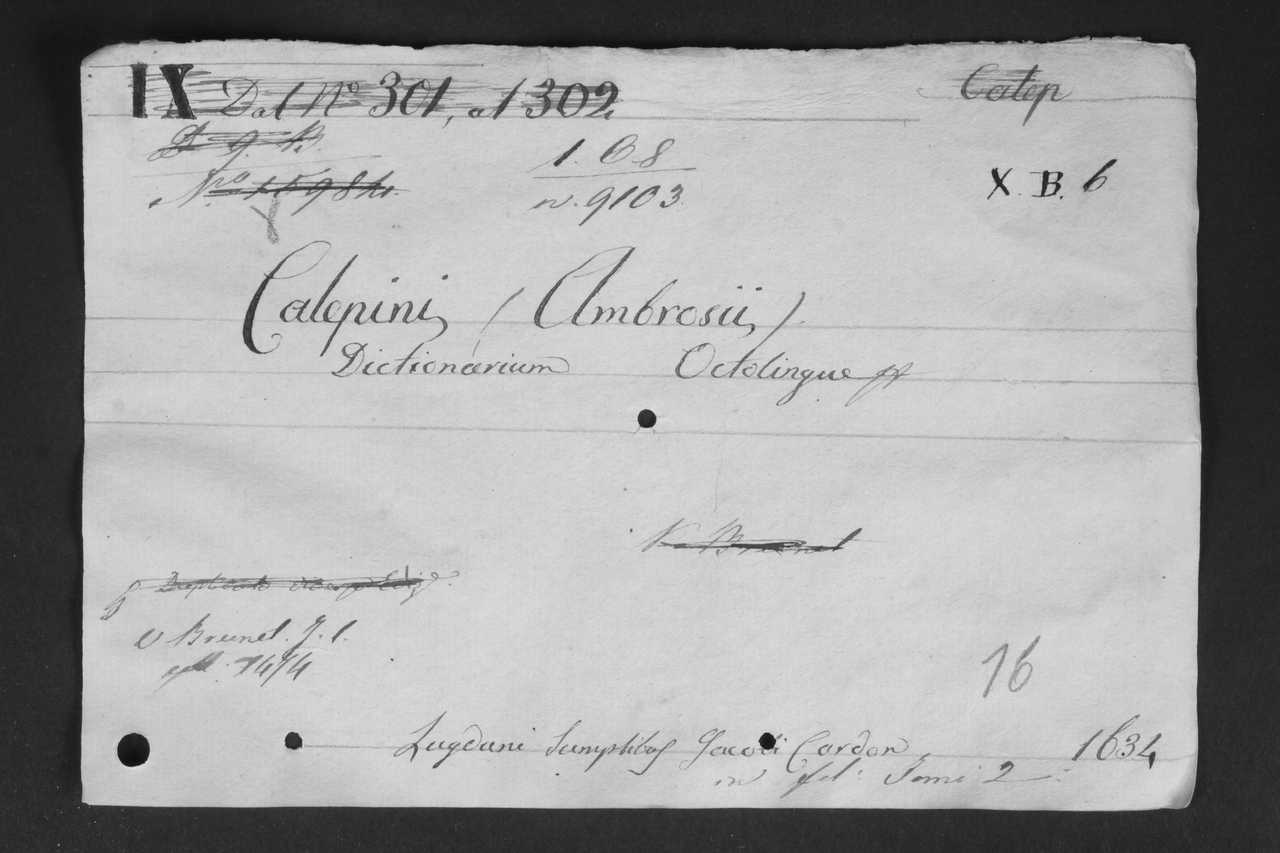 IX Dal Nº 301, al 302 Calep
Nº 15984.
1. 68
n. 9103.
X. B. 6
Calepini, (Ambrosii,)
Dictionarium Octolingue
V. Brunet
Duplicato
V Brunet. T. 1.
16
Lugduni Sumptibus Jacobi Cardon 1634
in fol: Tomi 2